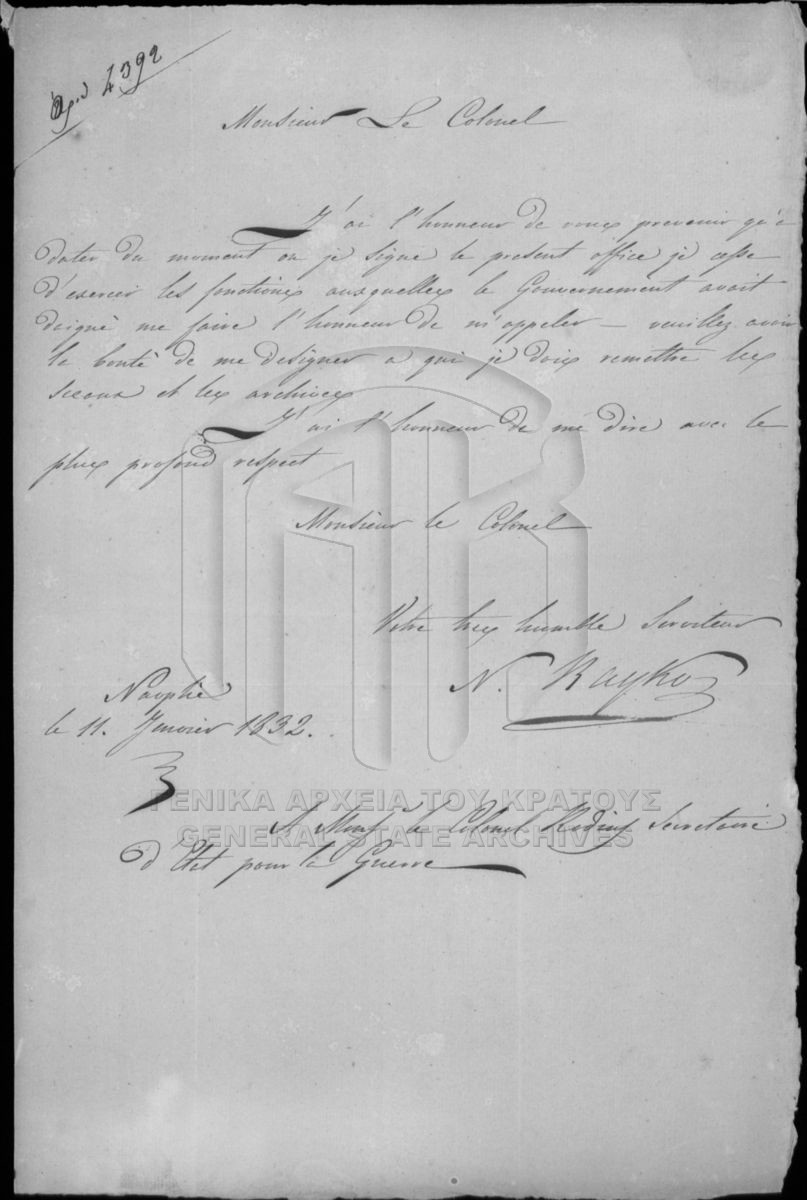 Αρ. 4392
Monsieur Le Colonel
J'ai l'honneur de vous prevenir qu'à
dater du moment ou je signe le present office je cesse
d'exercer les fonctions auxquelles le Gouvernement avait
daigné me faire l'honneur de m'appeler — veuillez avoir
la bonté de me designer a qui je dois remettre les
sceaux et les archives
J'ai l'honneur de me dire avec le
plus profond respect
Monsieur le Colonel
Votre tres humble Serviteur
N. Rayko
Nauplie
le 11. Janvier 1832.
A Monsr le Colonel Rodius Secretaire
d'Etat pour la Guerre
ΓΕΝΙΚΑ ΑΡΧΕΙΑ ΤΟΥ ΚΡΑΤΟΥΣ
GENERAL STATE ARCHIVES